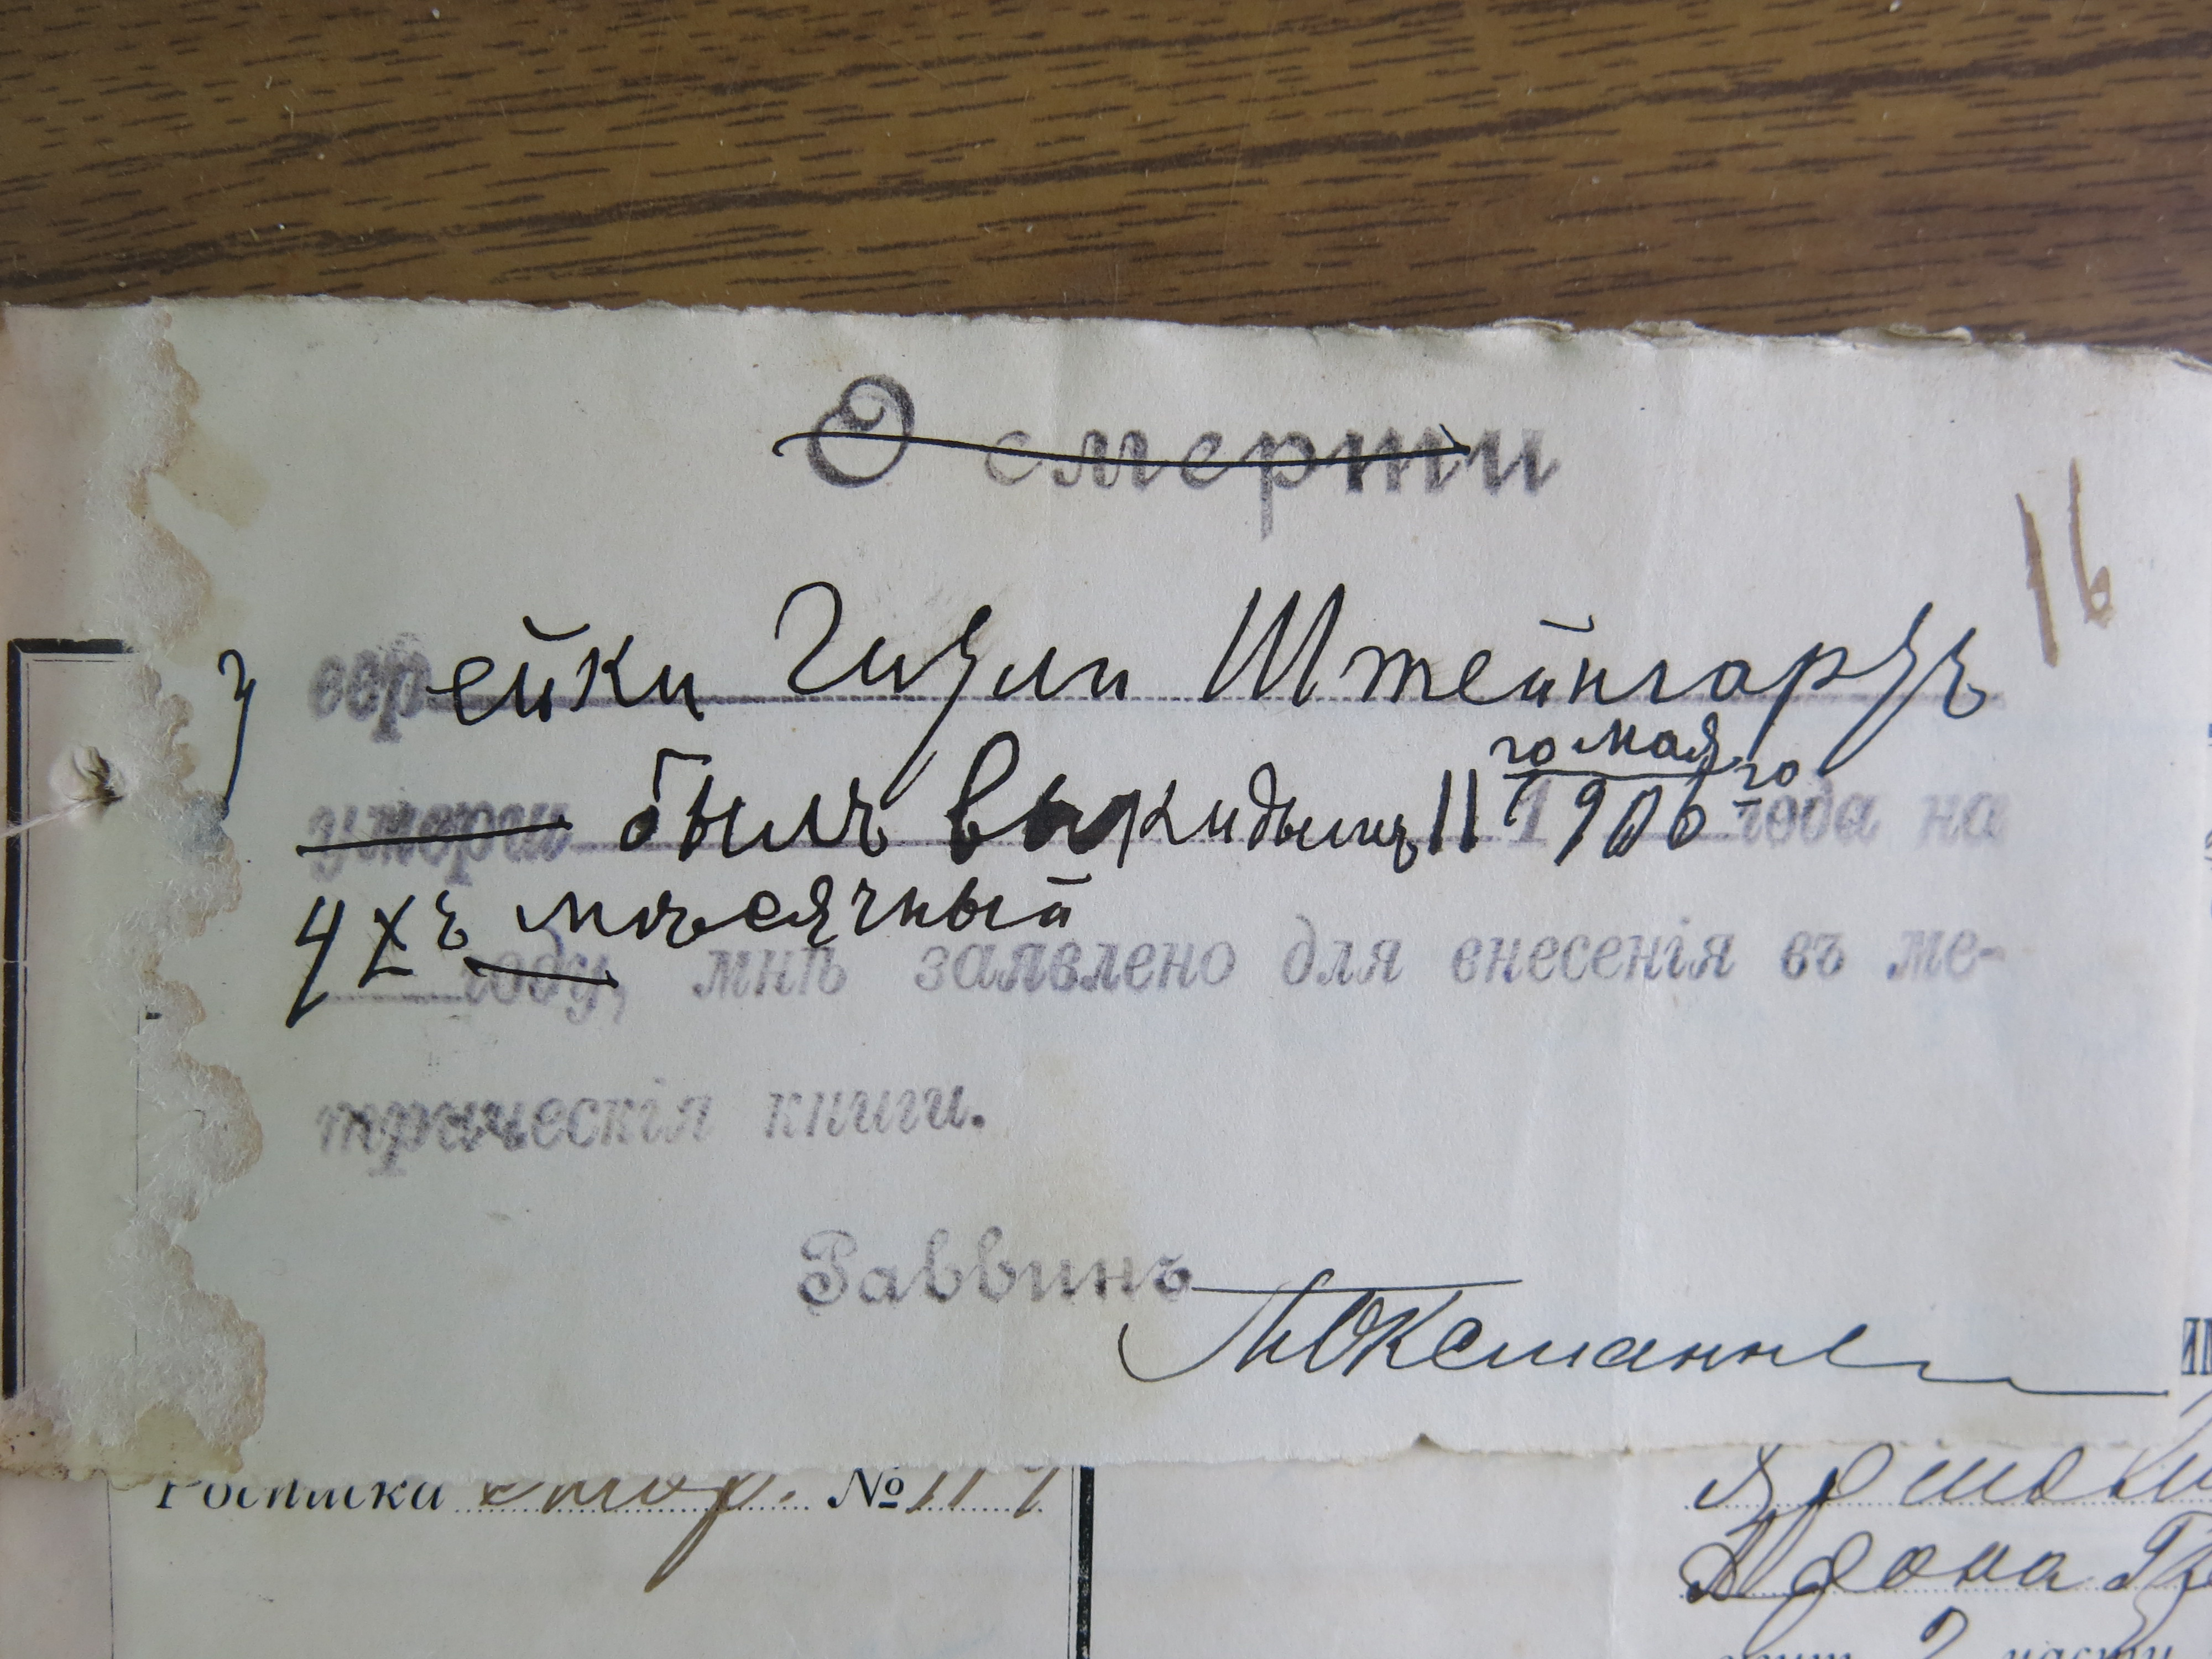 О смерти
16
у еврейки Гизли Штейнгарзъ
умерш былъ выкидышъ 11го мая 1906го года на
4хъ мѣсячный
году, мнѣ заявлено для внесенія въ ме-
трическія книги.
Раввинъ
Росписка стор. №
Арона
2 части